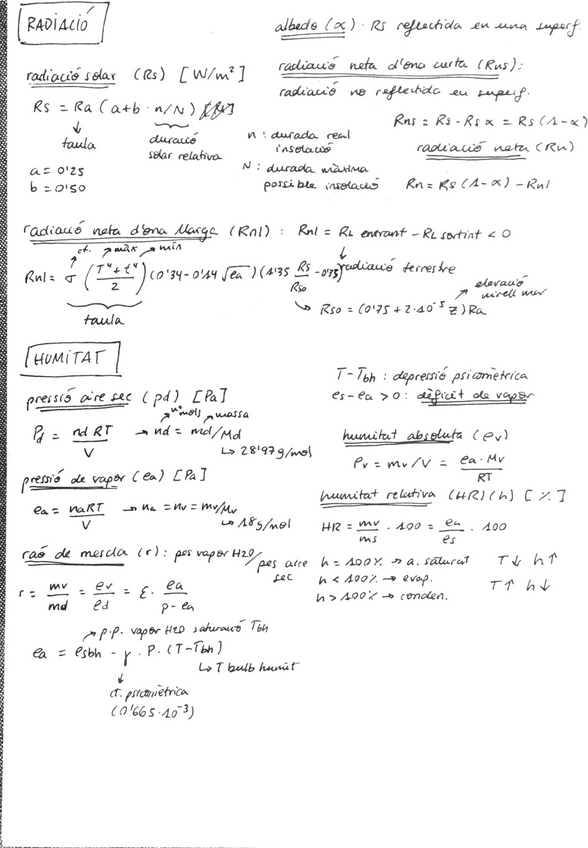 RADIACIÓ
albedo (α) · Rs reflectida en una superf.
radiació solar (Rs) [W/m²]
Rs = Ra (a+b · n/N)
taula
duració
solar relativa
a = 0'25
b = 0'50
n : durada real
insolació
N : durada màxima
possible insolació
radiació neta d'ona curta (Rns) :
radiació no reflectida en superf.
Rns = Rs - Rs α = Rs (1-α)
radiació neta (Rn)
Rn = Rs (1-α) - Rnl
radiació neta d'ona llarga (Rnl) : Rnl = RL entrant - RL sortint < 0
ct. màx min
Rnl = σ (T⁴ + t⁴ / 2) (0'34 - 0'14 √ea) (1'35 Rs/Rso - 0'35)
radiació terrestre
taula
elevació
nivell mar
Rso = (0'75 + 2·10⁻⁵ z) Ra
HUMITAT
pressió aire sec (pd) [Pa]
nºmols massa
Pd = nd RT / V → nd = md/Md
↳ 28'97 g/mol
pressió de vapor (ea) [Pa]
ea = naRT / V → na = nv = mv/Mv
↳ 18 g/mol
raó de mescla (r) : pes vapor H2O / pes aire
sec
r = mv/md = ρv/ρd = ε · ea / p - ea
p.p. vapor H2O saturació Tbh
ea = esbh - γ · P · (T - Tbh)
↳ T bulb humit
ct. psicomètrica
(0'665·10⁻³)
T - Tbh : depressió psicomètrica
es - ea > 0 : dèficit de vapor
humitat absoluta (ρv)
ρv = mv/V = ea · Mv / RT
humitat relativa (HR) (h) [%]
HR = mv/ms · 100 = ea/es · 100
h = 100% → a. saturat T↓ h↑
h < 100% → evap. T↑ h↓
h > 100% → conden.